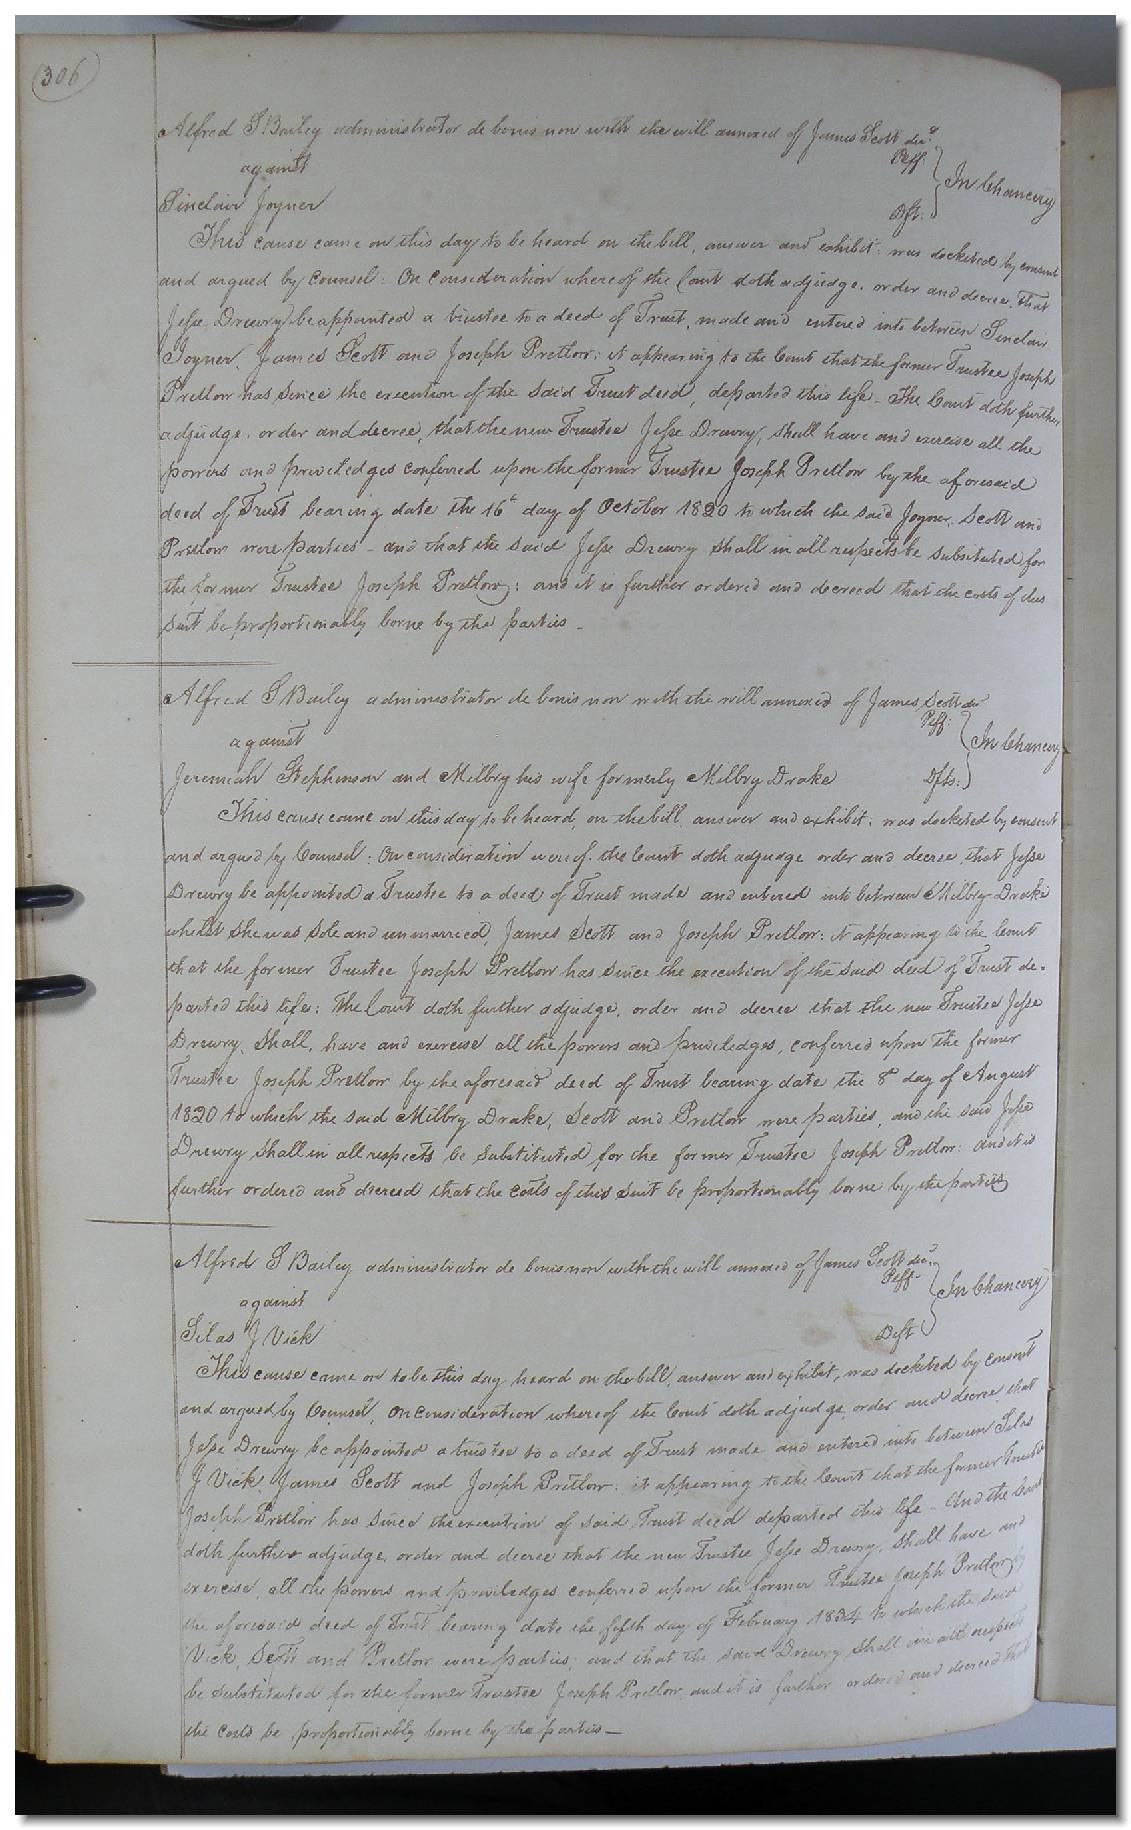 306
Alfred S Bailey administrator de bonis non with the will annexed of James Scott decd
Plff.
against
In Chancery
Sinclair Joyner
Dft.
This cause came on this day to be heard on the bill, answer and exhibit: was docketed by consent
and argued by counsel: On consideration whereof the Court doth adjudge, order and decree, that
Jesse Drewry be appointed a trustee to a deed of Trust, made and entered into between Sinclair
Joyner, James Scott and Joseph Pretlow: it appearing to the Court that the former Trustee Joseph
Pretlow has since the execution of the said Trust deed, departed this life - The Court doth further
adjudge, order and decree, that the new Trustee Jesse Drewry, shall have and exercise all the
powers and priviledges conferred upon the former Trustee Joseph Pretlow by the aforesaid
deed of Trust bearing date the 16th day of October 1820 to which the said Joyner, Scott and
Pretlow were parties - and that the said Jesse Drewry shall in all respects be substituted for
the former Trustee Joseph Pretlow; and it is further ordered and decreed that the costs of this
suit be proportionably borne by the parties -
Alfred S Bailey administrator de bonis non with the will annexed of James Scott dec
Plff:
against
In Chancery
Jeremiah Stephenson and Milbry his wife formerly Milbry Drake
Dfts:
This cause came on this day to be heard, on the bill, answer and exhibit; was docketed by consent
and argued by Counsel: On consideration wereof the Court doth adjudge order and decree that Jesse
Drewry be appointed a Trustee to a deed of Trust made and entered into between Milbry Drake
whilst she was sole and unmarried, James Scott and Joseph Pretlow: it appearing to the Court
that the former Trustee Joseph Pretlow has since the execution of the said deed of Trust de-
parted this life: The Court doth further adjudge, order and decree that the new Trustee Jesse
Drewry, Shall, have and exercise all the powers and priviledges, conferred upon the former
Trustee Joseph Pretlow by the aforesaid deed of Trust bearing date the 8th day of August
1820 to which the said Milbry Drake, Scott and Pretlow were parties, and the said Jesse
Drewry shall in all respects be substituted for the former Trustee Joseph Pretlow: and it is
further ordered and decreed that the costs of this suit be proportionably borne by the parties
Alfred S Bailey administrator de bonis non with the will annexed of James Scott decd
Plff
against
In Chancery
Silas J Vick
Deft
This cause came on to be this day heard on the bill, answer and exhibit, was docketed by consent
and argued by Counsel, On consideration whereof the Court doth adjudge, order and decree, that
Jesse Drewry be appointed a trustee to a deed of Trust made and entered into between Silas
J Vick, James Scott and Joseph Pretlow: it appearing to the Court that the former Trustee
Joseph Pretlow has since the execution of said Trust deed departed this life - And the Court
doth further adjudge, order and decree that the new Trustee Jesse Drewry, shall have and
exercise, all the powers and priviledges conferred upon the former Trustee Joseph Pretlow by
the aforesaid deed of Trust, bearing date the fifth day of February 1824 to which the said
Vick, Scott and Pretlow were parties; and that the said Drewry shall in all respects
be substituted for the former Trustee Joseph Pretlow, and it is further ordered and decreed that
the costs be proportionably borne by the parties -